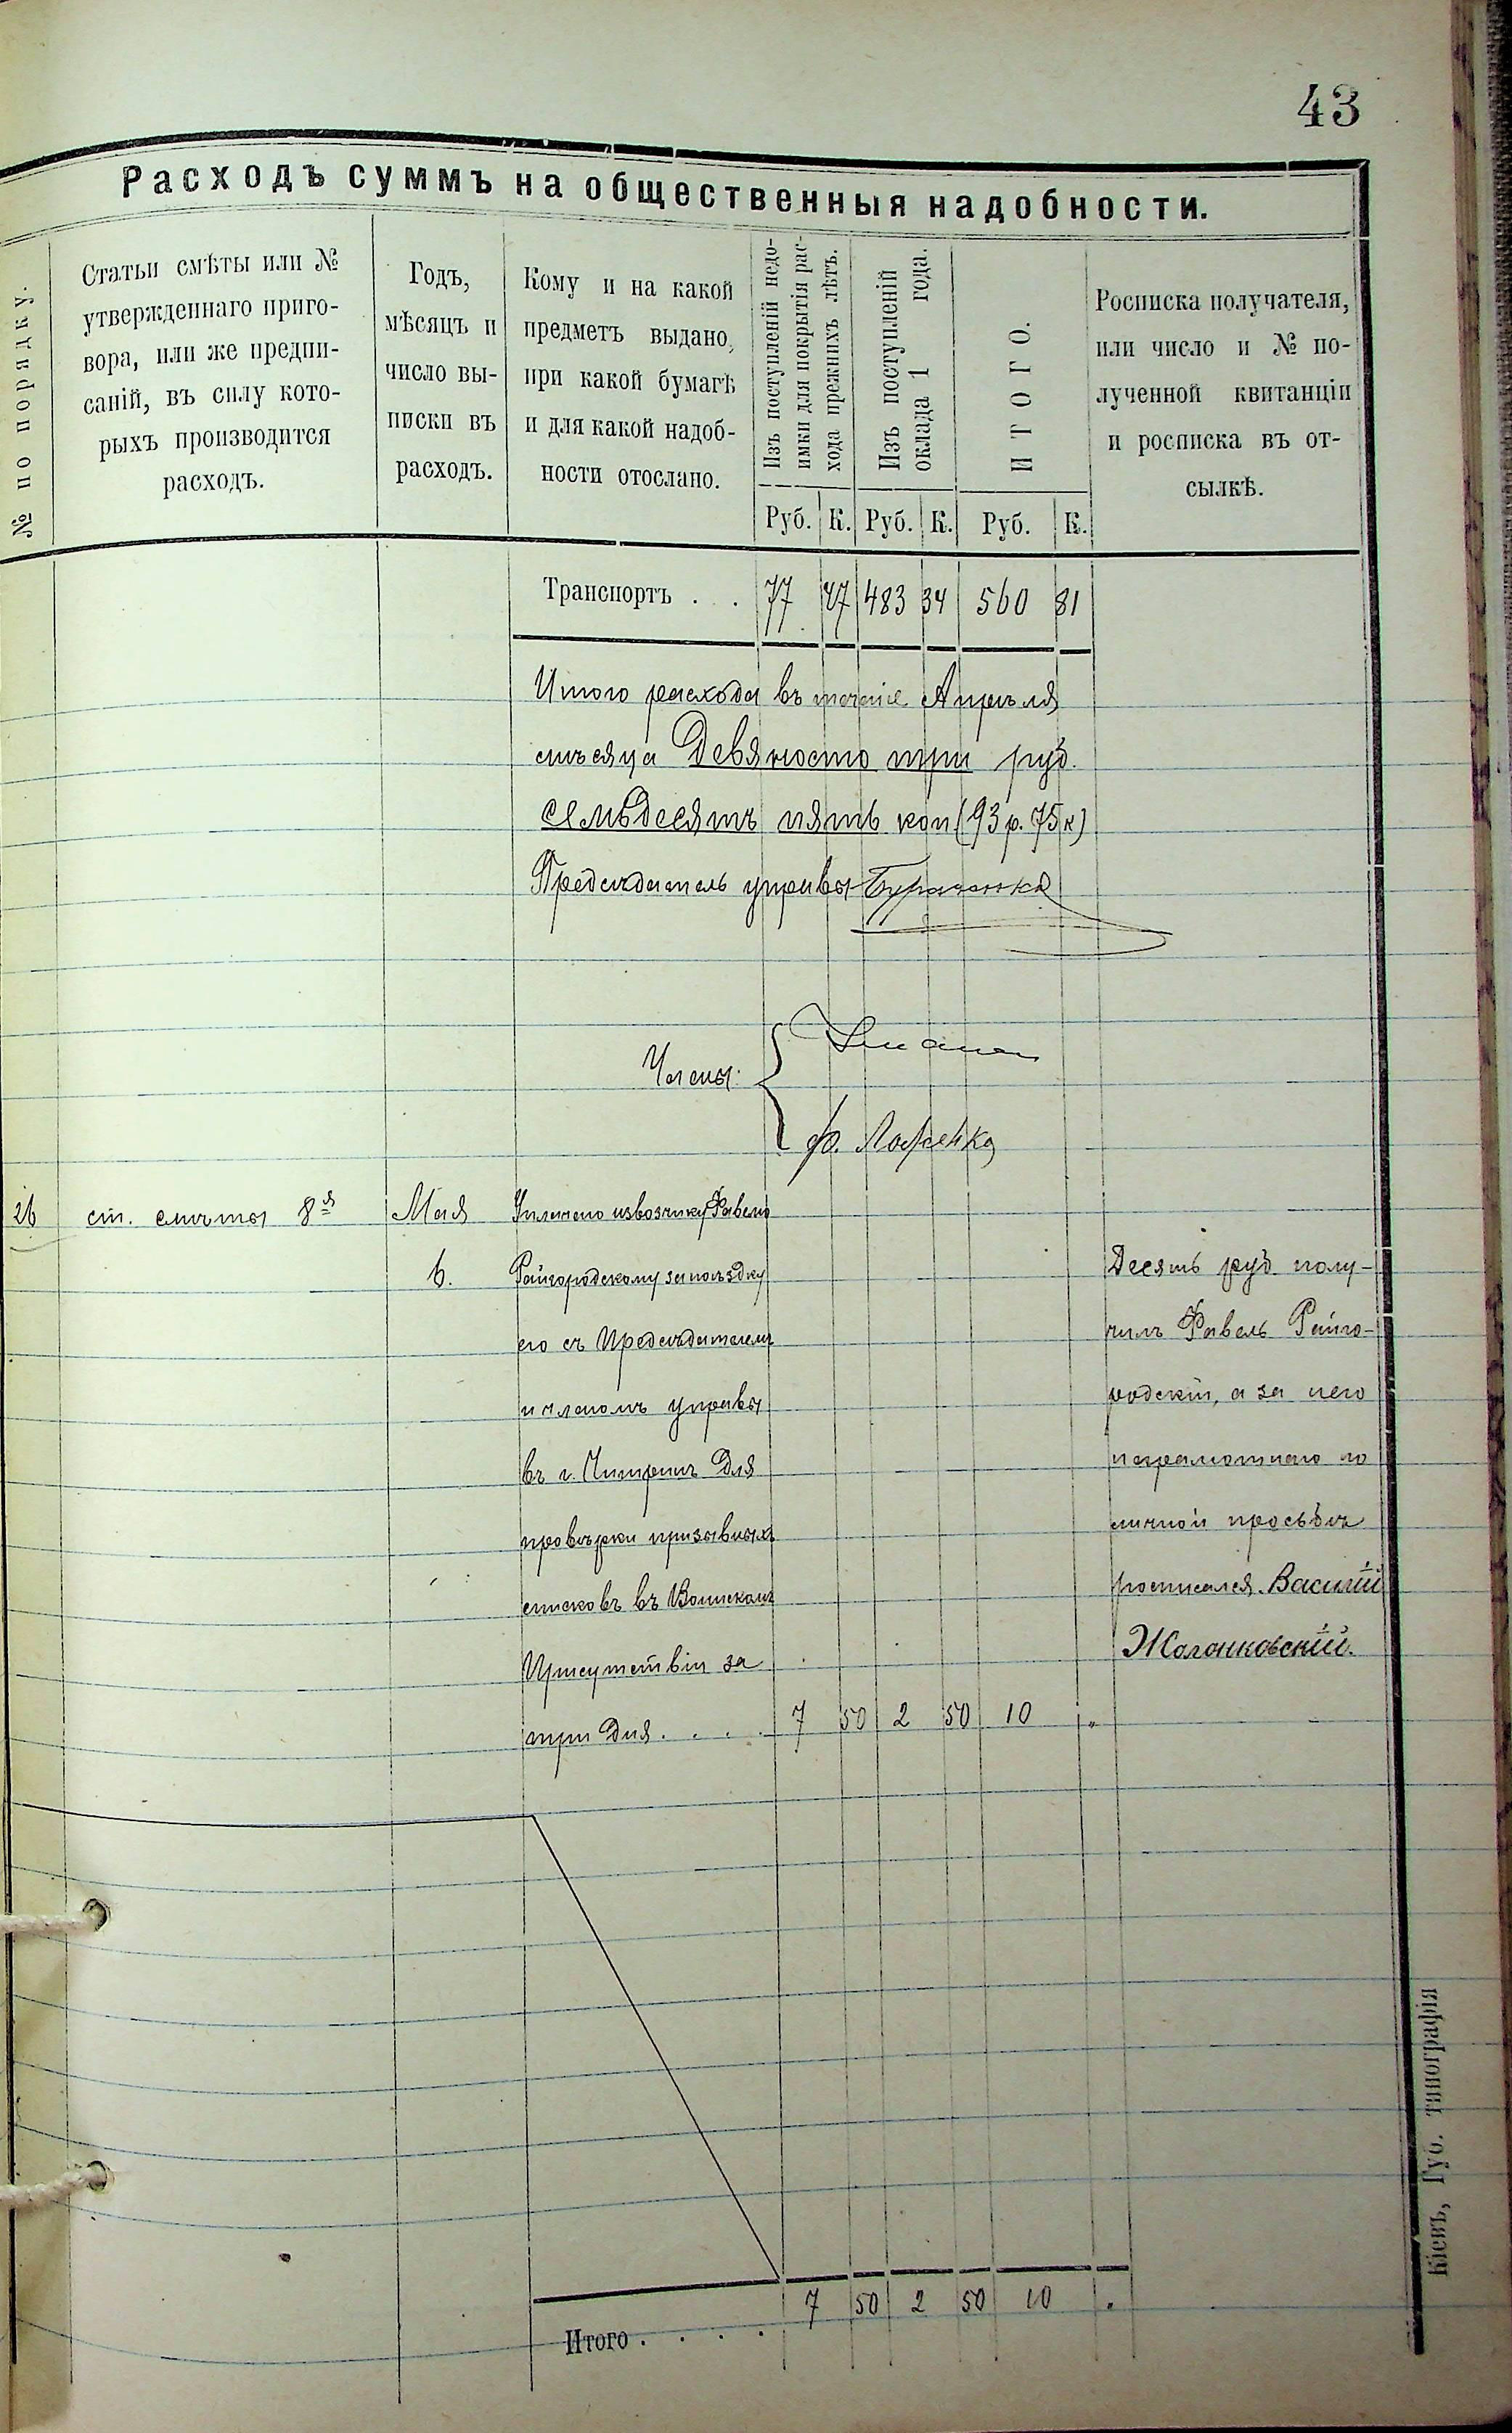 43
Расходъ суммъ на общественныя надобности.
№ по порядку.
Статьи смѣты или №
утвержденнаго приго-
вора, или же предпи-
саній, въ силу кото-
рыхъ производится
расходъ.
Годъ,
мѣсяцъ и
число вы-
писки въ
расходъ.
Кому и на какой
предметъ выдано,
при какой бумагѣ
и для какой надоб-
ности отослано.
Изъ поступленій недо-
имки для покрытія рас-
хода прежнихъ лѣтъ.
Изъ поступленій
оклада 1 года.
ИТОГО.
Росписка получателя,
или число и № по-
лученной квитанціи
и росписка въ от-
сылкѣ.
Руб. К. Руб. К. Руб. К.
Транспортъ . . 77 47 483 34 560 81
Итого расхода въ теченіе Апрѣля
мѣсяца Девяносто три руб.
семьдесятъ пять коп (93 р. 75 к)
Предсѣдатель управы
Члены:
26 ст. смѣты 8я Мая Уплачено извозчику
6. Райгородскому за поѣздку
его съ Предсѣдателемъ
и членомъ управы
въ г. Чигринъ для
провѣрки призывныхъ
списковъ въ Воинскомъ
Присутствіи за
три дня . . . . 7 50 2 50 10 "
Десять руб. полу-
чилъ Райго-
родскій, а за него
неграмотнаго по
личной просьбѣ
росписался Василій
Жолонковскій.
Итого . . . . 7 50 2 50 10 "
Кіевъ, Губ. типографія